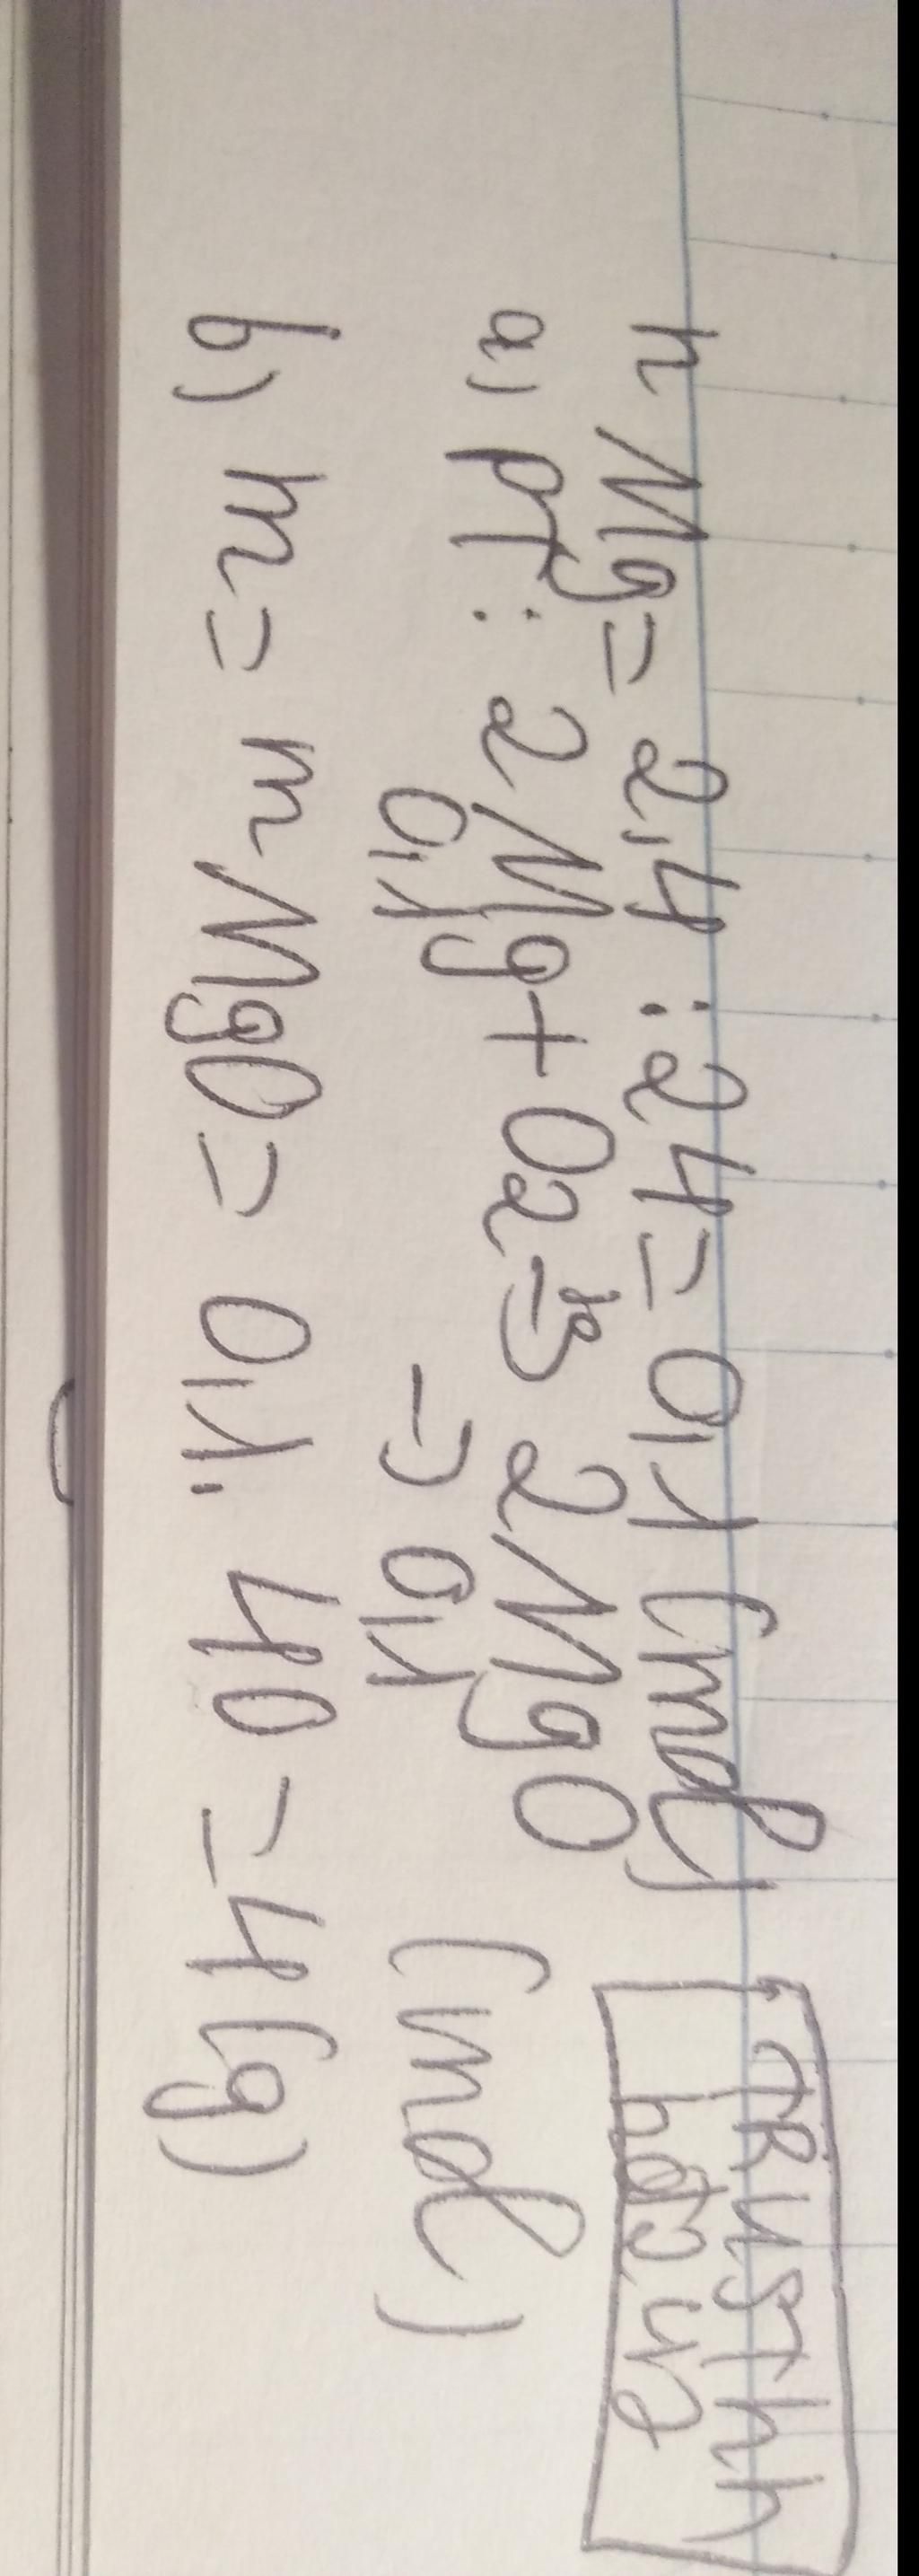 n Mg = 2,4 : 24 = 0,1 (mol)
a, PT: 2Mg + O2 -to-> 2MgO
0,1 -> 0,1 (mol)
b) m = mMgO = 0,1 . 40 = 4 (g)
TRUSTh